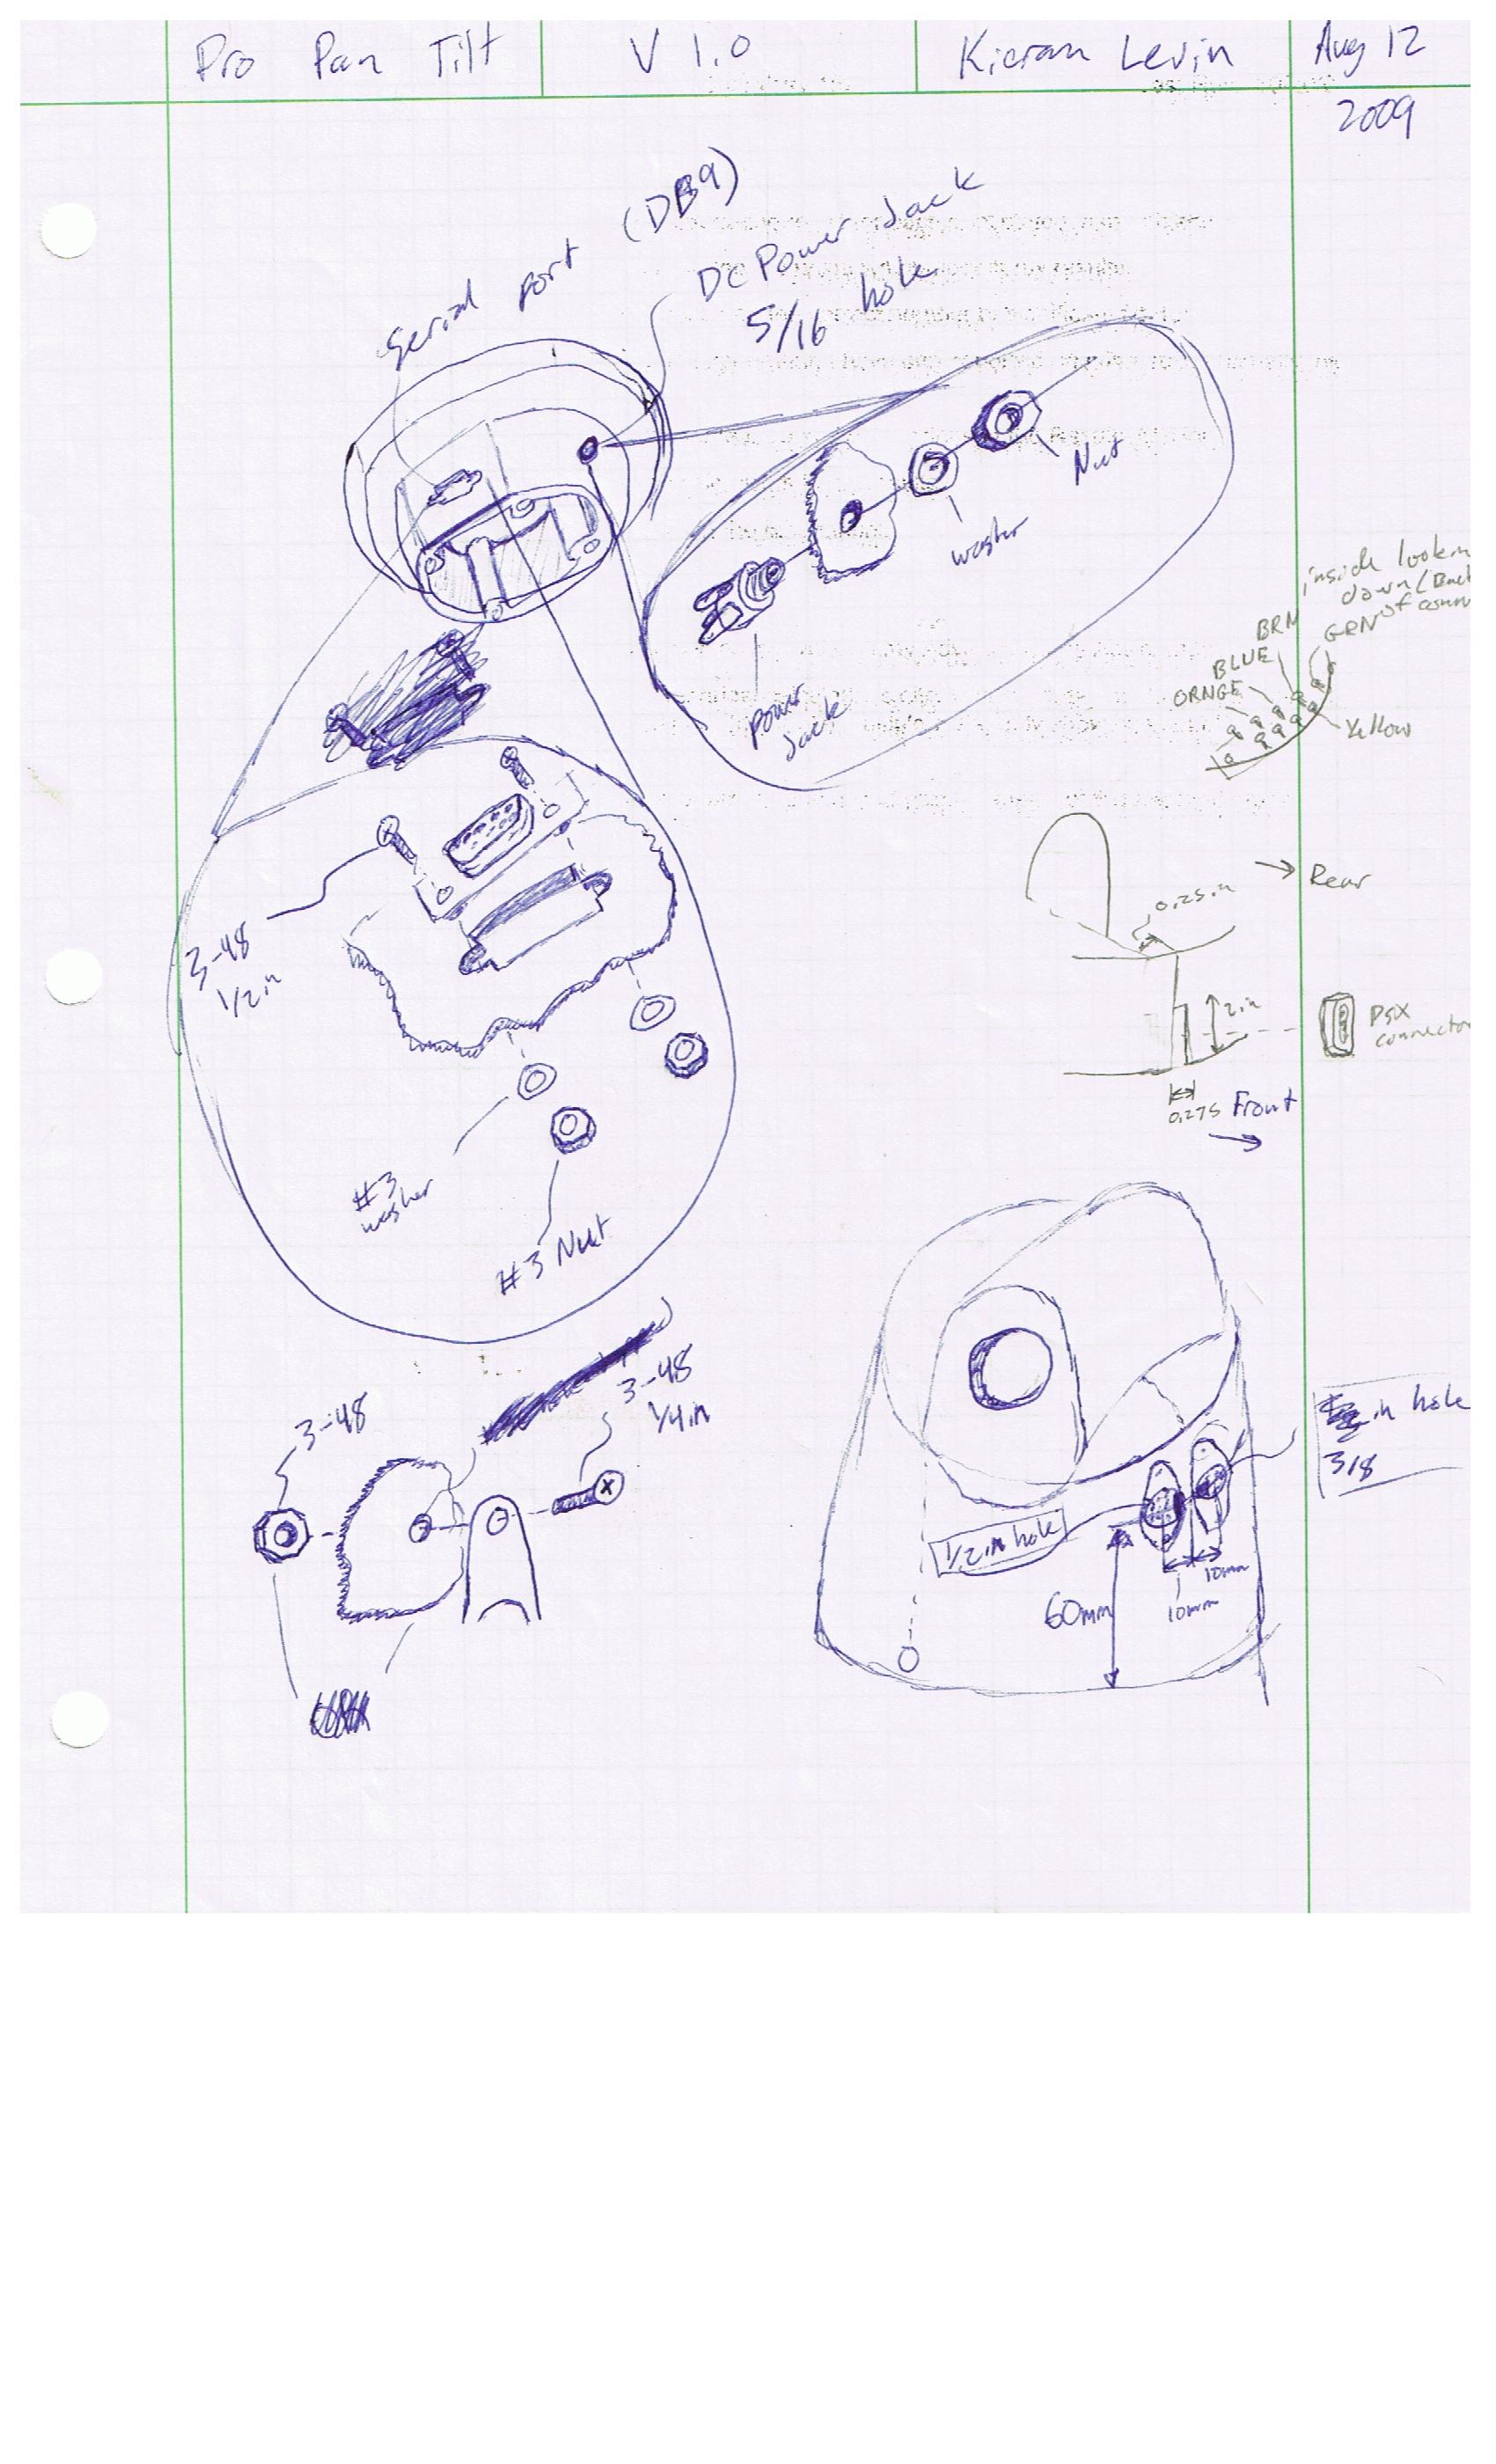 Pro Pan Tilt
V 1.0
Kieran Levin
Aug 12
2009
Serial port (DB9)
DC Power Jack
5/16 hole
Nut
washer
power
Jack
inside lookin
down (Back
of conn
BRN
GRN
BLUE
ORNGE
Yellow
3-48
1/2 in
#3
washer
#3 Nut
Rear
0.25 in
2 in
PSX
connector
0.275
Front
3-48
3-48
1/4 in
1/2 in hole
in hole
3/8
60mm
10mm
10mm